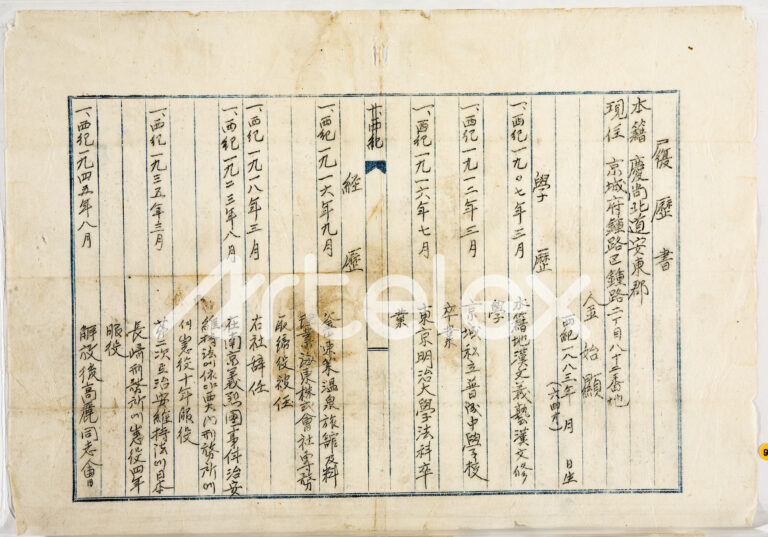 履歷書
本籍 慶尙北道安東郡
現住 京城府鍾路區鍾路二丁目八十三番地
金始顯
西紀一八八三年 月 日生
(六四才)
學歷
一、西紀一九〇七年三月 本籍地漢文義藝漢文修
學
一、西紀一九一二年三月 京城私立普成中學校
卒業
一、西紀一九一六年七月 東京明治大學法科卒
業
一、西紀
經歷
一、西紀一九一六年九月 釜山東萊溫泉旅館及料
理業海東株式會社專務
取締役被任
一、西紀一九一八年三月 右社辭任
一、西紀一九二三年八月 在南京義烈團事件治安
維持法에依하야西大門刑務所에
서懲役十年服役
一、西紀一九三五年三月 第二次도治安維持法에日本
長崎刑務所에懲役四年
服役
一、西紀一九四五年八月 解放後高麗同志會
Artelox